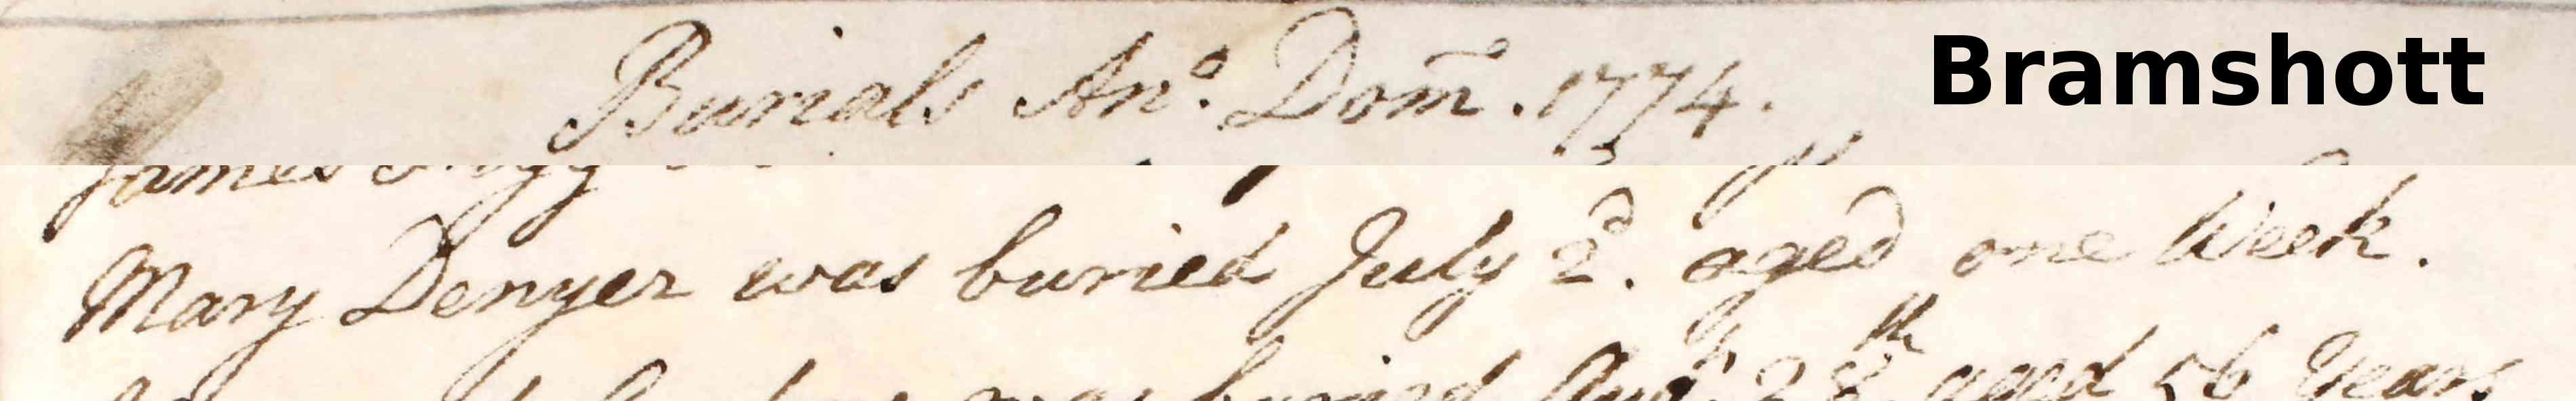 Burials Anº. Dom̃. 1774. Bramshott
James
Mary Denyer was buried July 2d. aged one Week.
was buried Augt 28th aged 56 Years